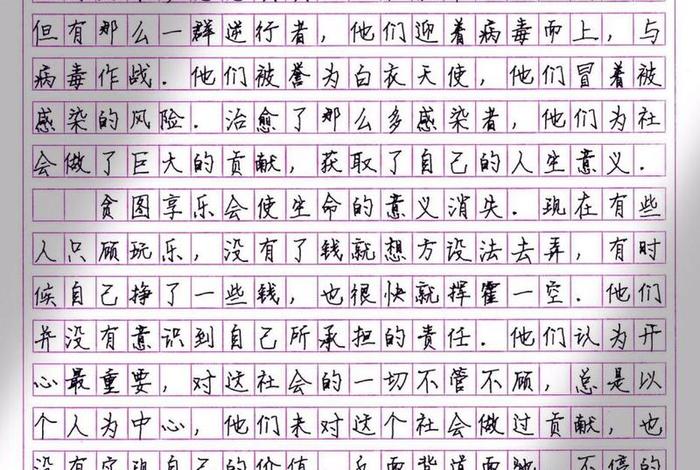 但有那么一群逆行者，他们迎着病毒而上，与
病毒作战．他们被誉为白衣天使，他们冒着被
感染的风险．治愈了那么多感染者，他们为社
会做了巨大的贡献，获取了自己的人生意义．
贪图享乐会使生命的意义消失．现在有些
人只顾玩乐，没有了钱就想方设法去弄，有时
候自己挣了一些钱，也很快就挥霍一空．他们
并没有意识到自己所承担的责任．他们认为开
心最重要，对这社会的一切不管不顾，总是以
个人为中心，他们未对这个社会做过贡献，也
没有实现自己的价值．反而背道而驰．不停的